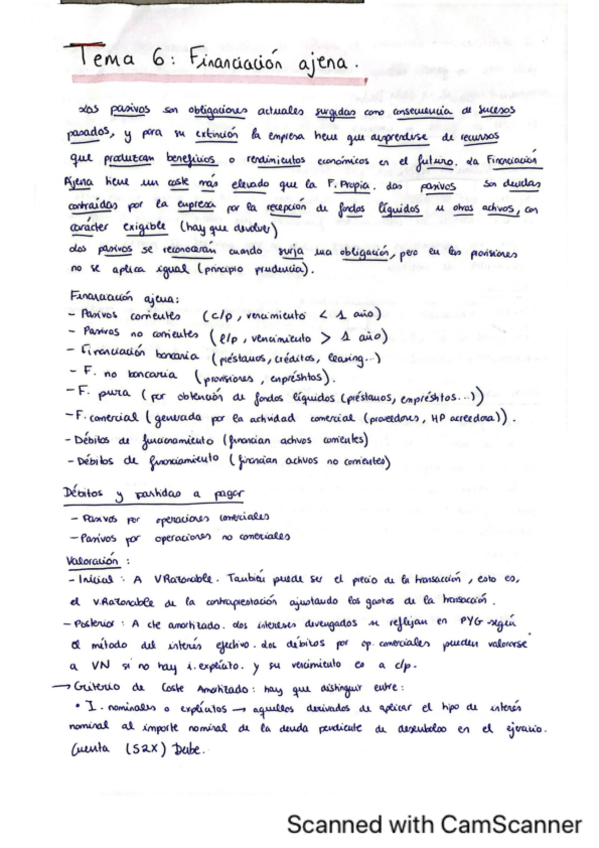 Tema 6: Financiación ajena.
Los pasivos son obligaciones actuales surgidas como consecuencia de sucesos
pasados, y para su extinción la empresa tiene que desprenderse de recursos
que produzcan beneficios o rendimientos económicos en el futuro. La Financiación
Ajena tiene un coste más elevado que la F. Propia. Los pasivos son deudas
contraídas por la empresa por la recepción de fondos líquidos u otros activos, con
carácter exigible (hay que devolver)
Los pasivos se reconocerán cuando surja una obligación, pero en las provisiones
no se aplica igual (principio prudencia).
Financiación ajena:
- Pasivos corrientes (c/p, vencimiento < 1 año)
- Pasivos no corrientes (l/p, vencimiento > 1 año)
- Financiación bancaria (préstamos, créditos, leasing...)
- F. no bancaria (provisiones, empréstitos).
- F. pura (por obtención de fondos líquidos (préstamos, empréstitos...))
- F. comercial (generada por la actividad comercial (proveedores, HP acreedora)).
- Débitos de funcionamiento (financian activos corrientes)
- Débitos de financiamiento (financian activos no corrientes)
Débitos y partidas a pagar
- Pasivos por operaciones comerciales
- Pasivos por operaciones no comerciales
Valoración:
- Inicial: A VRazonable. También puede ser el precio de la transacción, esto es,
el V.Razonable de la contraprestación ajustando los gastos de la transacción.
- Posterior: A cte amortizado. Los intereses devengados se reflejan en PYG según
el método del interés efectivo. Los débitos por op. comerciales pueden valorarse
a VN si no hay i. explícito. y su vencimiento es a c/p.
→ Criterio de Coste Amortizado: hay que distinguir entre:
• I. nominales o explícitos → aquellos derivados de aplicar el tipo de interés
nominal al importe nominal de la deuda pendiente de desembolso en el ejercicio.
Cuenta (52X) Debe.
Scanned with CamScanner